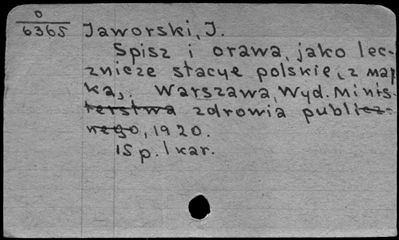 0
6365
Jaworski, J.
Spisz i orawa, jako lec-
znicze stacye polskie, z map
ką,. Warszawa, Wyd. Minis-
terstwa zdrowia publicz-
nego, 1920.
15 p. 1 kar.